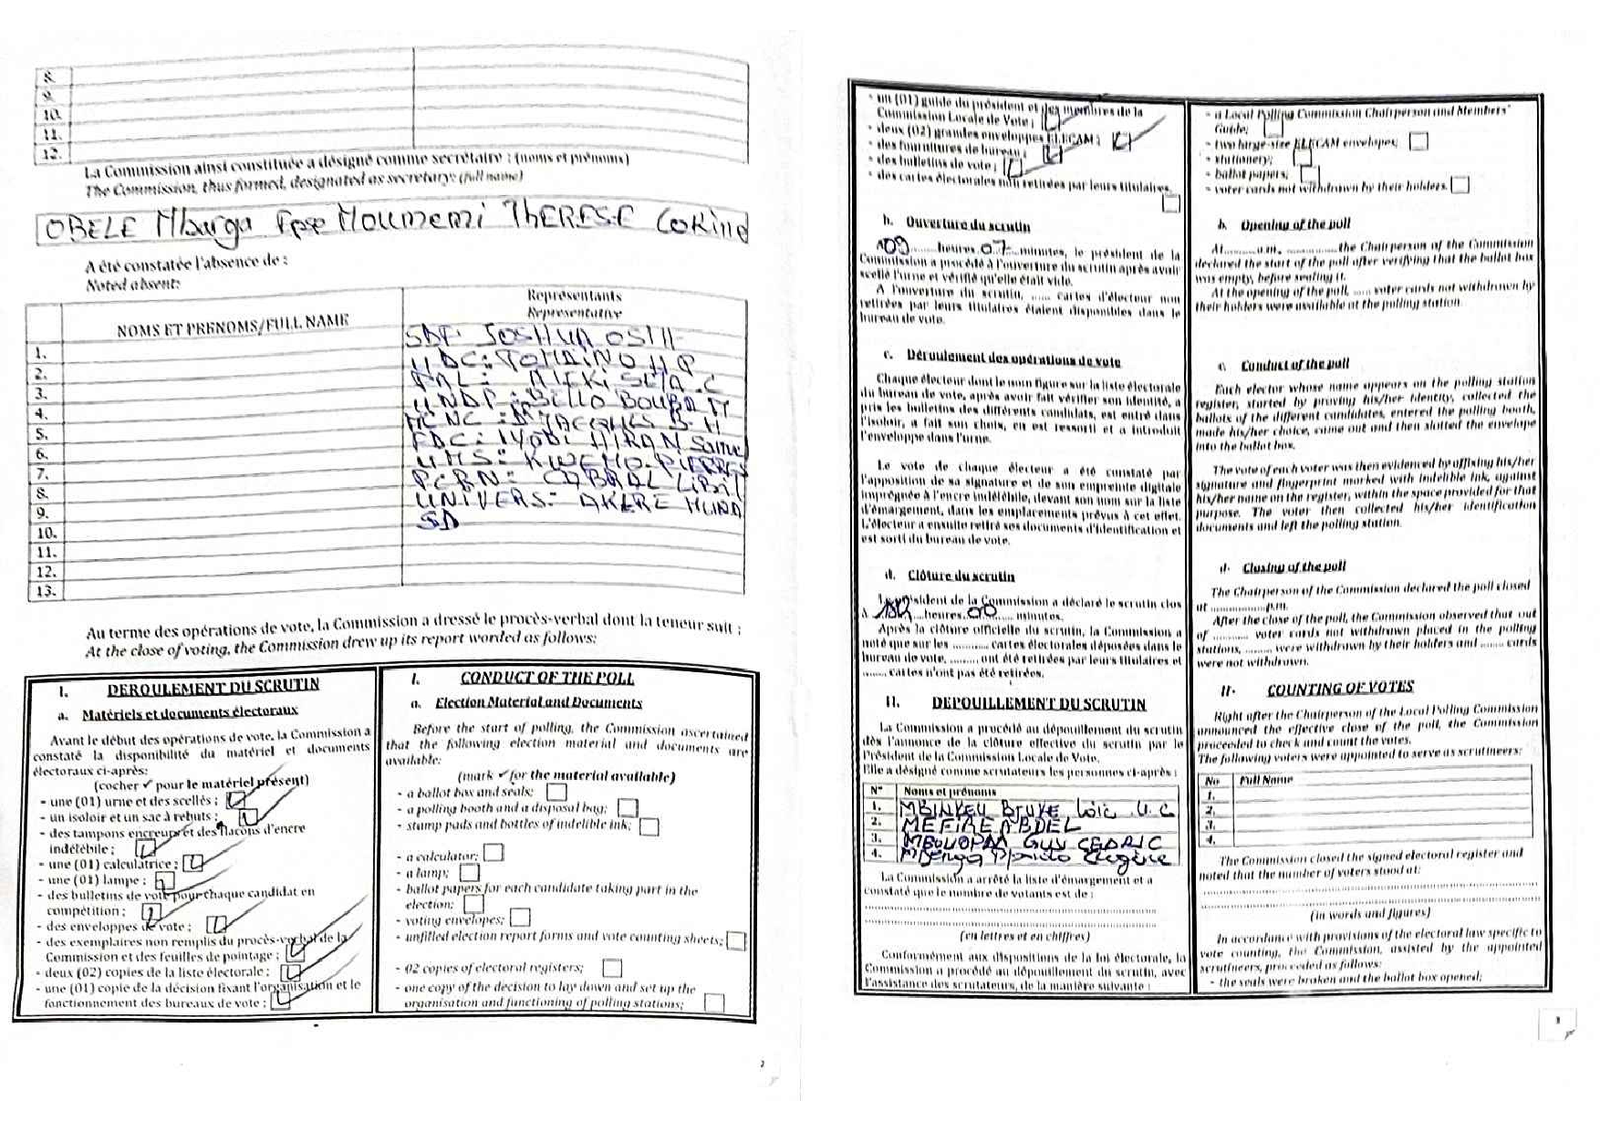 8.
9.
10.
11.
12.
La Commission ainsi constituée a désigné comme secrétaire : (noms et prénoms)
The Commission, thus formed, designated as secretary: (full name)
OBELE Mbarga Epse Moumemi THERESE Corine
A été constatée l'absence de :
Noted absent:
NOMS ET PRENOMS/FULL NAME
Représentants
Representative
1.
2.
3.
4.
5.
6.
7.
8.
9.
10.
11.
12.
13.
SDF: JOSHUA OSIH
UDC: TOMAINO H P
PAL: ATEKI SETA .C
UNDP: BELLO BOUBA M
MCNC: JACQUES B H
FDC: IYODI HIRAM Samuel
UMS: KWEMO PIERRE
PCRN: CABRAL LIBII
UNIVERS: AKERE MUNA
SD
Au terme des opérations de vote, la Commission a dressé le procès-verbal dont la teneur suit :
At the close of voting, the Commission drew up its report worded as follows:
I. DEROULEMENT DU SCRUTIN
a. Matériels et documents électoraux
Avant le début des opérations de vote, la Commission a
constaté la disponibilité du matériel et documents
électoraux ci-après:
(cocher ✓ pour le matériel présent)
- une (01) urne et des scellés ;
- un isoloir et un sac à rebuts ;
- des tampons encreurs et des flacons d'encre
indélébile ;
- une (01) calculatrice ;
- une (01) lampe ;
- des bulletins de vote pour chaque candidat en
compétition ;
- des enveloppes de vote ;
- des exemplaires non remplis du procès-verbal de la
Commission et des feuilles de pointage ;
- deux (02) copies de la liste électorale ;
- une (01) copie de la décision fixant l'organisation et le
fonctionnement des bureaux de vote ;
I. CONDUCT OF THE POLL
a. Election Material and Documents
Before the start of polling, the Commission ascertained
that the following election material and documents are
available:
(mark ✓ for the material available)
- a ballot box and seals;
- a polling booth and a disposal bag;
- stamp pads and bottles of indelible ink;
- a calculator;
- a lamp;
- ballot papers for each candidate taking part in the
election;
- voting envelopes;
- unfilled election report forms and vote counting sheets;
- 02 copies of electoral registers;
- one copy of the decision to lay down and set up the
organisation and functioning of polling stations;
2
- un (01) guide du président et des membres de la
Commission Locale de Vote ;
- deux (02) grandes enveloppes ELECAM ;
- des fournitures de bureau ;
- des bulletins de vote ;
- des cartes électorales non retirées par leurs titulaires.
b. Ouverture du scrutin
A 09 heures 07 minutes, le président de la
Commission a procédé à l'ouverture du scrutin après avoir
scellé l'urne et vérifié qu'elle était vide.
A l'ouverture du scrutin, ...... cartes d'électeur non
retirées par leurs titulaires étaient disponibles dans le
bureau de vote.
c. Déroulement des opérations de vote
Chaque électeur dont le nom figure sur la liste électorale
du bureau de vote, après avoir fait vérifier son identité, a
pris les bulletins des différents candidats, est entré dans
l'isoloir, a fait son choix, en est ressorti et a introduit
l'enveloppe dans l'urne.
Le vote de chaque électeur a été constaté par
l'apposition de sa signature et de son empreinte digitale
imprégnée à l'encre indélébile, devant son nom sur la liste
d'émargement, dans les emplacements prévus à cet effet.
L'électeur a ensuite retiré ses documents d'identification et
est sorti du bureau de vote.
d. Clôture du scrutin
Le président de la Commission a déclaré le scrutin clos
à 18 heures 00 minutes.
Après la clôture officielle du scrutin, la Commission a
noté que sur les .......... cartes électorales déposées dans le
bureau de vote, ........ ont été retirées par leurs titulaires et
....... cartes n'ont pas été retirées.
II. DEPOUILLEMENT DU SCRUTIN
La Commission a procédé au dépouillement du scrutin
dès l'annonce de la clôture effective du scrutin par le
Président de la Commission Locale de Vote.
Elle a désigné comme scrutateurs les personnes ci-après :
N° Noms et prénoms
1. MBINKEU Loïc U.C
2. MEFIRE ABDEL
3. MBOUOPDA GUY CEDRIC
4. Mbenga Eugène
La Commission a arrêté la liste d'émargement et a
constaté que le nombre de votants est de :
(en lettres et en chiffres)
Conformément aux dispositions de la loi électorale, la
Commission a procédé au dépouillement du scrutin, avec
l'assistance des scrutateurs, de la manière suivante :
- a Local Polling Commission Chairperson and Members'
Guide;
- two large-size ELECAM envelopes;
- stationery;
- ballot papers;
- voter cards not withdrawn by their holders.
b. Opening of the poll
At........a.m, ..............the Chairperson of the Commission
declared the start of the poll after verifying that the ballot box
was empty, before sealing it.
At the opening of the poll, ...... voter cards not withdrawn by
their holders were available at the polling station.
c. Conduct of the poll
Each elector whose name appears on the polling station
register, started by proving his/her identity, collected the
ballots of the different candidates, entered the polling booth,
made his/her choice, came out and then slotted the envelope
into the ballot box.
The vote of each voter was then evidenced by affixing his/her
signature and fingerprint marked with indelible ink, against
his/her name on the register, within the space provided for that
purpose. The voter then collected his/her identification
documents and left the polling station.
d. Closing of the poll
The Chairperson of the Commission declared the poll closed
at ...............p.m.
After the close of the poll, the Commission observed that out
of .......... voter cards not withdrawn placed in the polling
stations, ........ were withdrawn by their holders and ....... cards
were not withdrawn.
II- COUNTING OF VOTES
Right after the Chairperson of the Local Polling Commission
announced the effective close of the poll, the Commission
proceeded to check and count the votes.
The following voters were appointed to serve as scrutineers:
No Full Name
1.
2.
3.
4.
The Commission closed the signed electoral register and
noted that the number of voters stood at:
(in words and figures)
In accordance with provisions of the electoral law specific to
vote counting, the Commission, assisted by the appointed
scrutineers, proceeded as follows:
- the seals were broken and the ballot box opened;
3